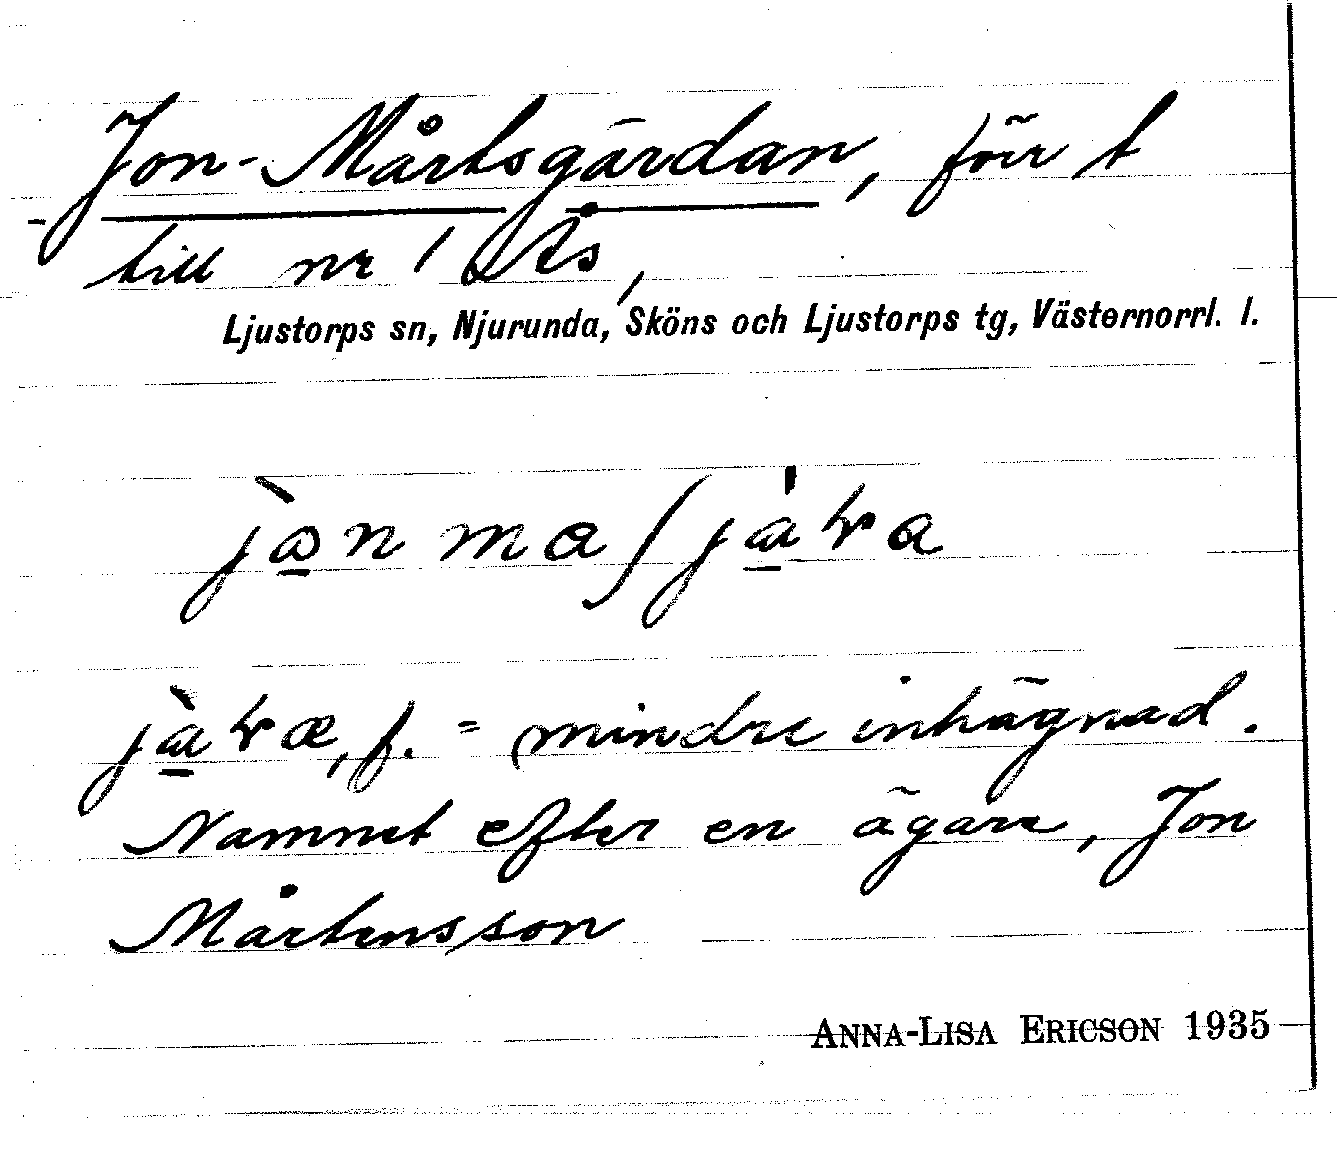 Jon-Mårtsgärdan, förr t
till nr 1 Ås,
Ljustorps sn, Njurunda, Sköns och Ljustorps tg, Västernorrl. l.
f. = mindre inhägnad.
Namnet efter en ägare, Jon
Mårtensson
ANNA-LISA ERICSON 1935